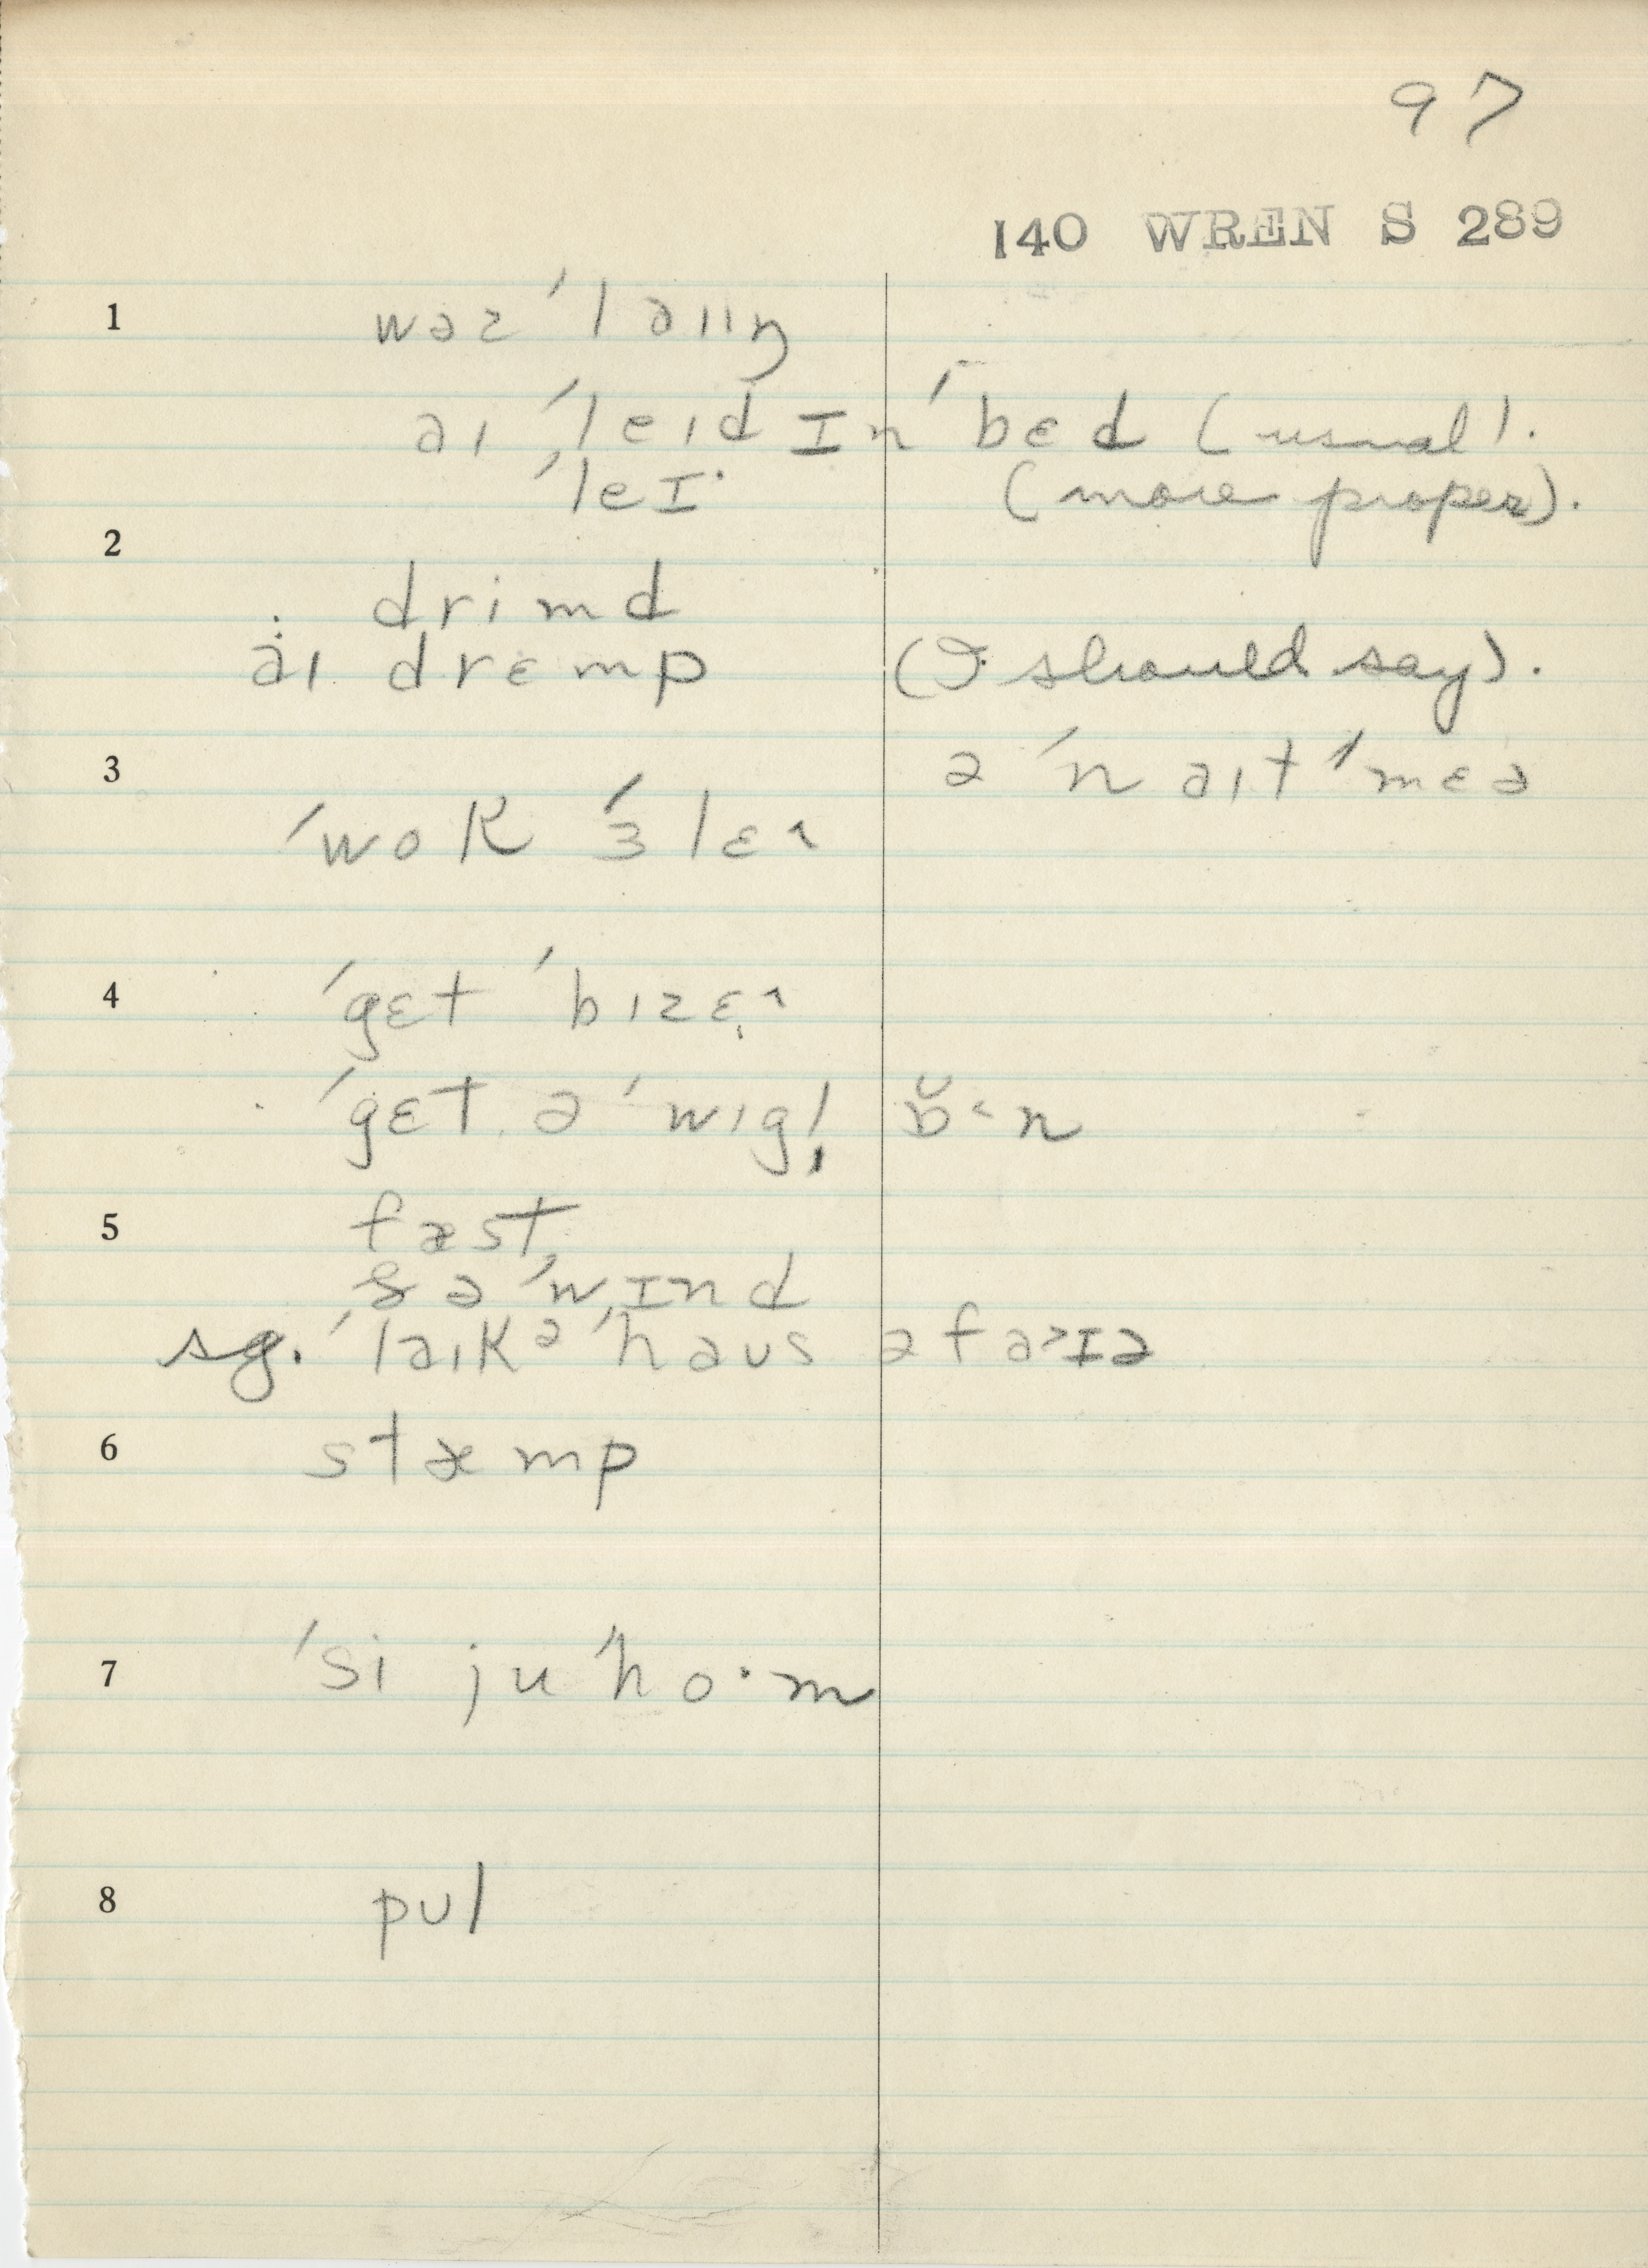 97
140 WREN S 289
1 wəz ˈlaɪɪŋ
aɪ ˈleɪd ɪn ˈbɛd (usual).
ˈleɪ· (more proper).
2
drimd
aɪ drɛmp (I should say).
3 ə ˈnaɪtˈmɛə
ˈwok ˈɜlɛ˄
4 ˈgɛt ˈbɪzɛ˄
ˈgɛt ə ˈwɪgl̩ ɒ̆˂n
5 fæst
z ə ˈwɪnd
sg. ˈlaɪk ə ˈhaʊs əfa˃ɪə
6 stæmp
7 ˈsi ju ˈho·m
8 pʊl